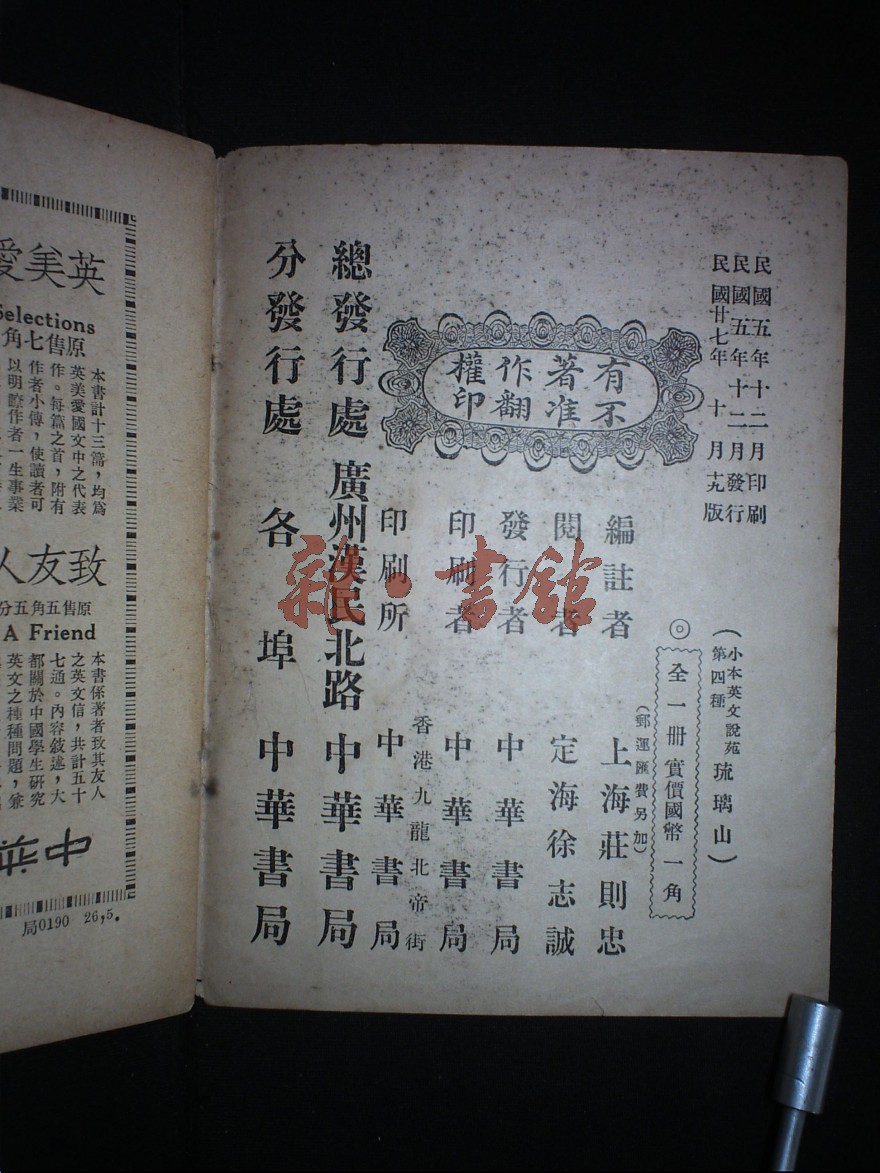 民國五年十二月印刷
民國五年十二月發行
民國廿七年十月十九版
有著作權
不准翻印
（小本英文說苑第四種 琉璃山）
◎
全一冊實價國幣一角
（郵運匯費另加）
編註者 上海莊則忠
閱者 定海徐志誠
發行者 中華書局
印刷者 中華書局
香港九龍北帝街
印刷所 中華書局
總發行處 廣州漢民北路 中華書局
分發行處 各埠 中華書局
書館
英美愛
Selections
原售七角
本書計十三篇，均爲
英美愛國文中之代表
作。每篇之首，附有
作者小傳，使讀者可
以明瞭作者一生事業
致友人
原售五角五分
A Friend
本書係著者致其友人
之英文信，共計五十
七通。內容敘述，大
都關於中國學生研究
英文之種種問題，兼
中華
局0190 26,5.